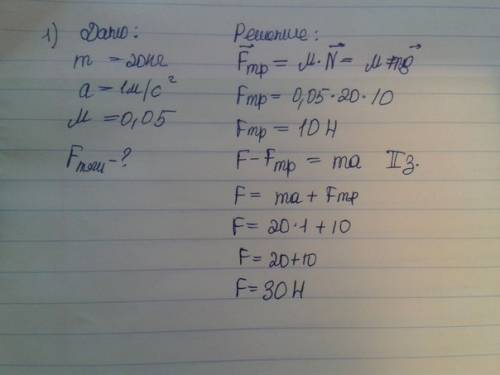 1) Дано:
m = 20кг
a = 1м/с²
μ = 0,05
Fтяги - ?
Решение:
F⃗тр = μ · N⃗ = μ · mg⃗
Fтр = 0,05 · 20 · 10
Fтр = 10 Н
F - Fтр = ma II з.
F = ma + Fтр
F = 20 · 1 + 10
F = 20+10
F = 30 Н